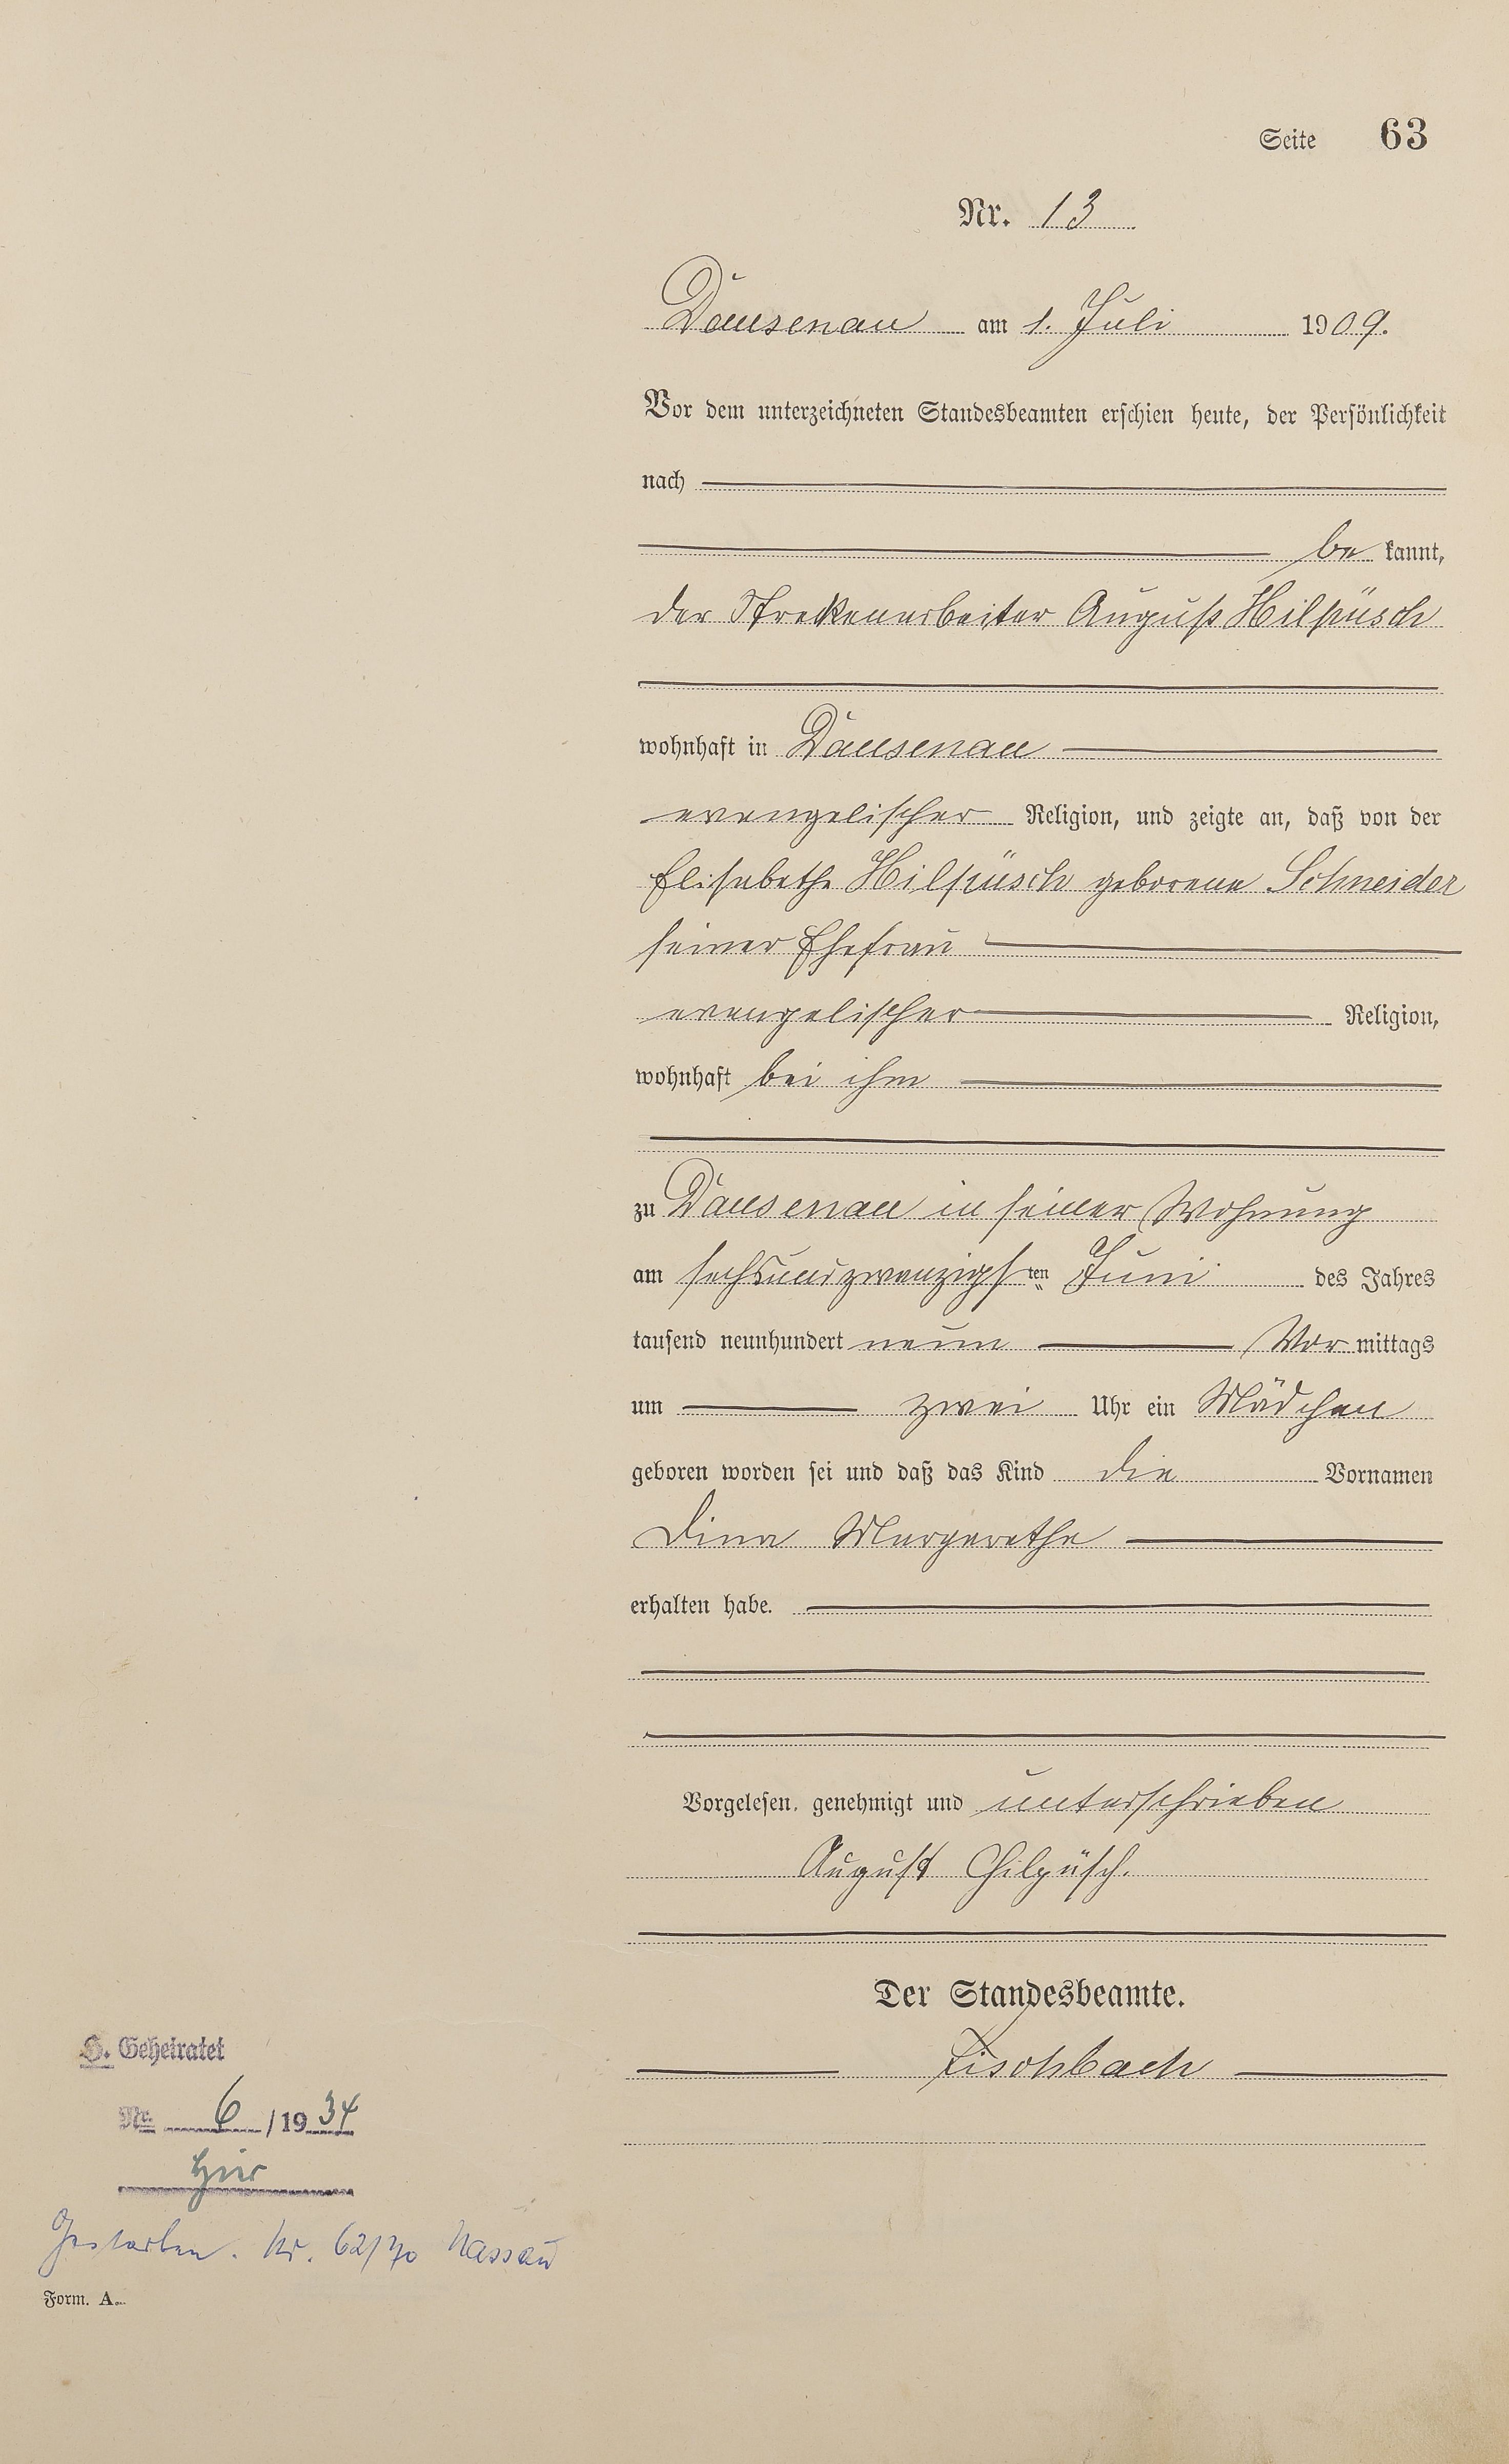 Seite 63
Nr. 13
Dausenau am 1. Juli 1909.
Vor dem unterzeichneten Standesbeamten erschien heute, der Persönlichkeit
nach
be kannt,
der Streckenarbeiter August Hilpüsch
wohnhaft in Dausenau
evangelischer Religion, und zeigte an, daß von der
Elisabethe Hilpüsch geborene Schneider
seiner Ehefrau
evangelischer Religion,
wohnhaft bei ihm
zu Dausenau in seiner Wohnung
am sechsundzwanzigsten Juni des Jahres
tausend neunhundert neun Vor mittags
um zwei Uhr ein Mädchen
geboren worden sei und daß das Kind die Vornamen
Dina Margarethe
erhalten habe.
Vorgelesen, genehmigt und unterschrieben
August Hilpüsch.
Der Standesbeamte.
Fischbach
H. Geheiratet
Nr. 6 / 1934
hier
Gestorben. Nr. 62/70 Nassau
Form. A.